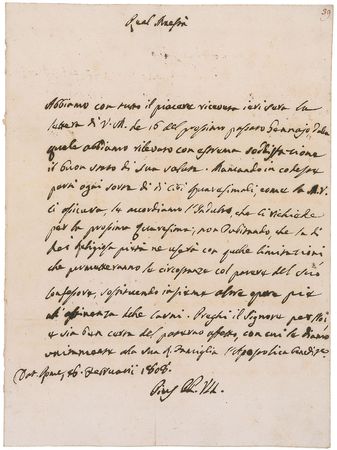 39
Real Maestà
Abbiamo con tutto il piacere ricevuta jeri sera la
lettera di V. M. de 16 del prossimo passato Gennajo dalla
quale abbiamo rilevato con estrema soddisfazione
il buon stato di sua salute. Mancando in cotesti
paesi ogni sorta di cibi quaresimali, come la M. V.
ci assicura, le accordiamo l'Indulto, che ci richiede
per la prossima Quaresima; non dubitando, che la di
Lei Religiosa pietà ne userà con quelle limitazioni
che permetteranno le circostanze col parere del suo
Confessore, sostituendo insieme altre opere pie
all'astinenza delle carni. Preghi il Signore per Noi,
e sia ben certa del paterno affetto, con cui le diamo
unitamente alla sua R. Famiglia l'Apostolica Benediz.
Dat. Romae 26. Februarii 1808.
Pius PP. VII.